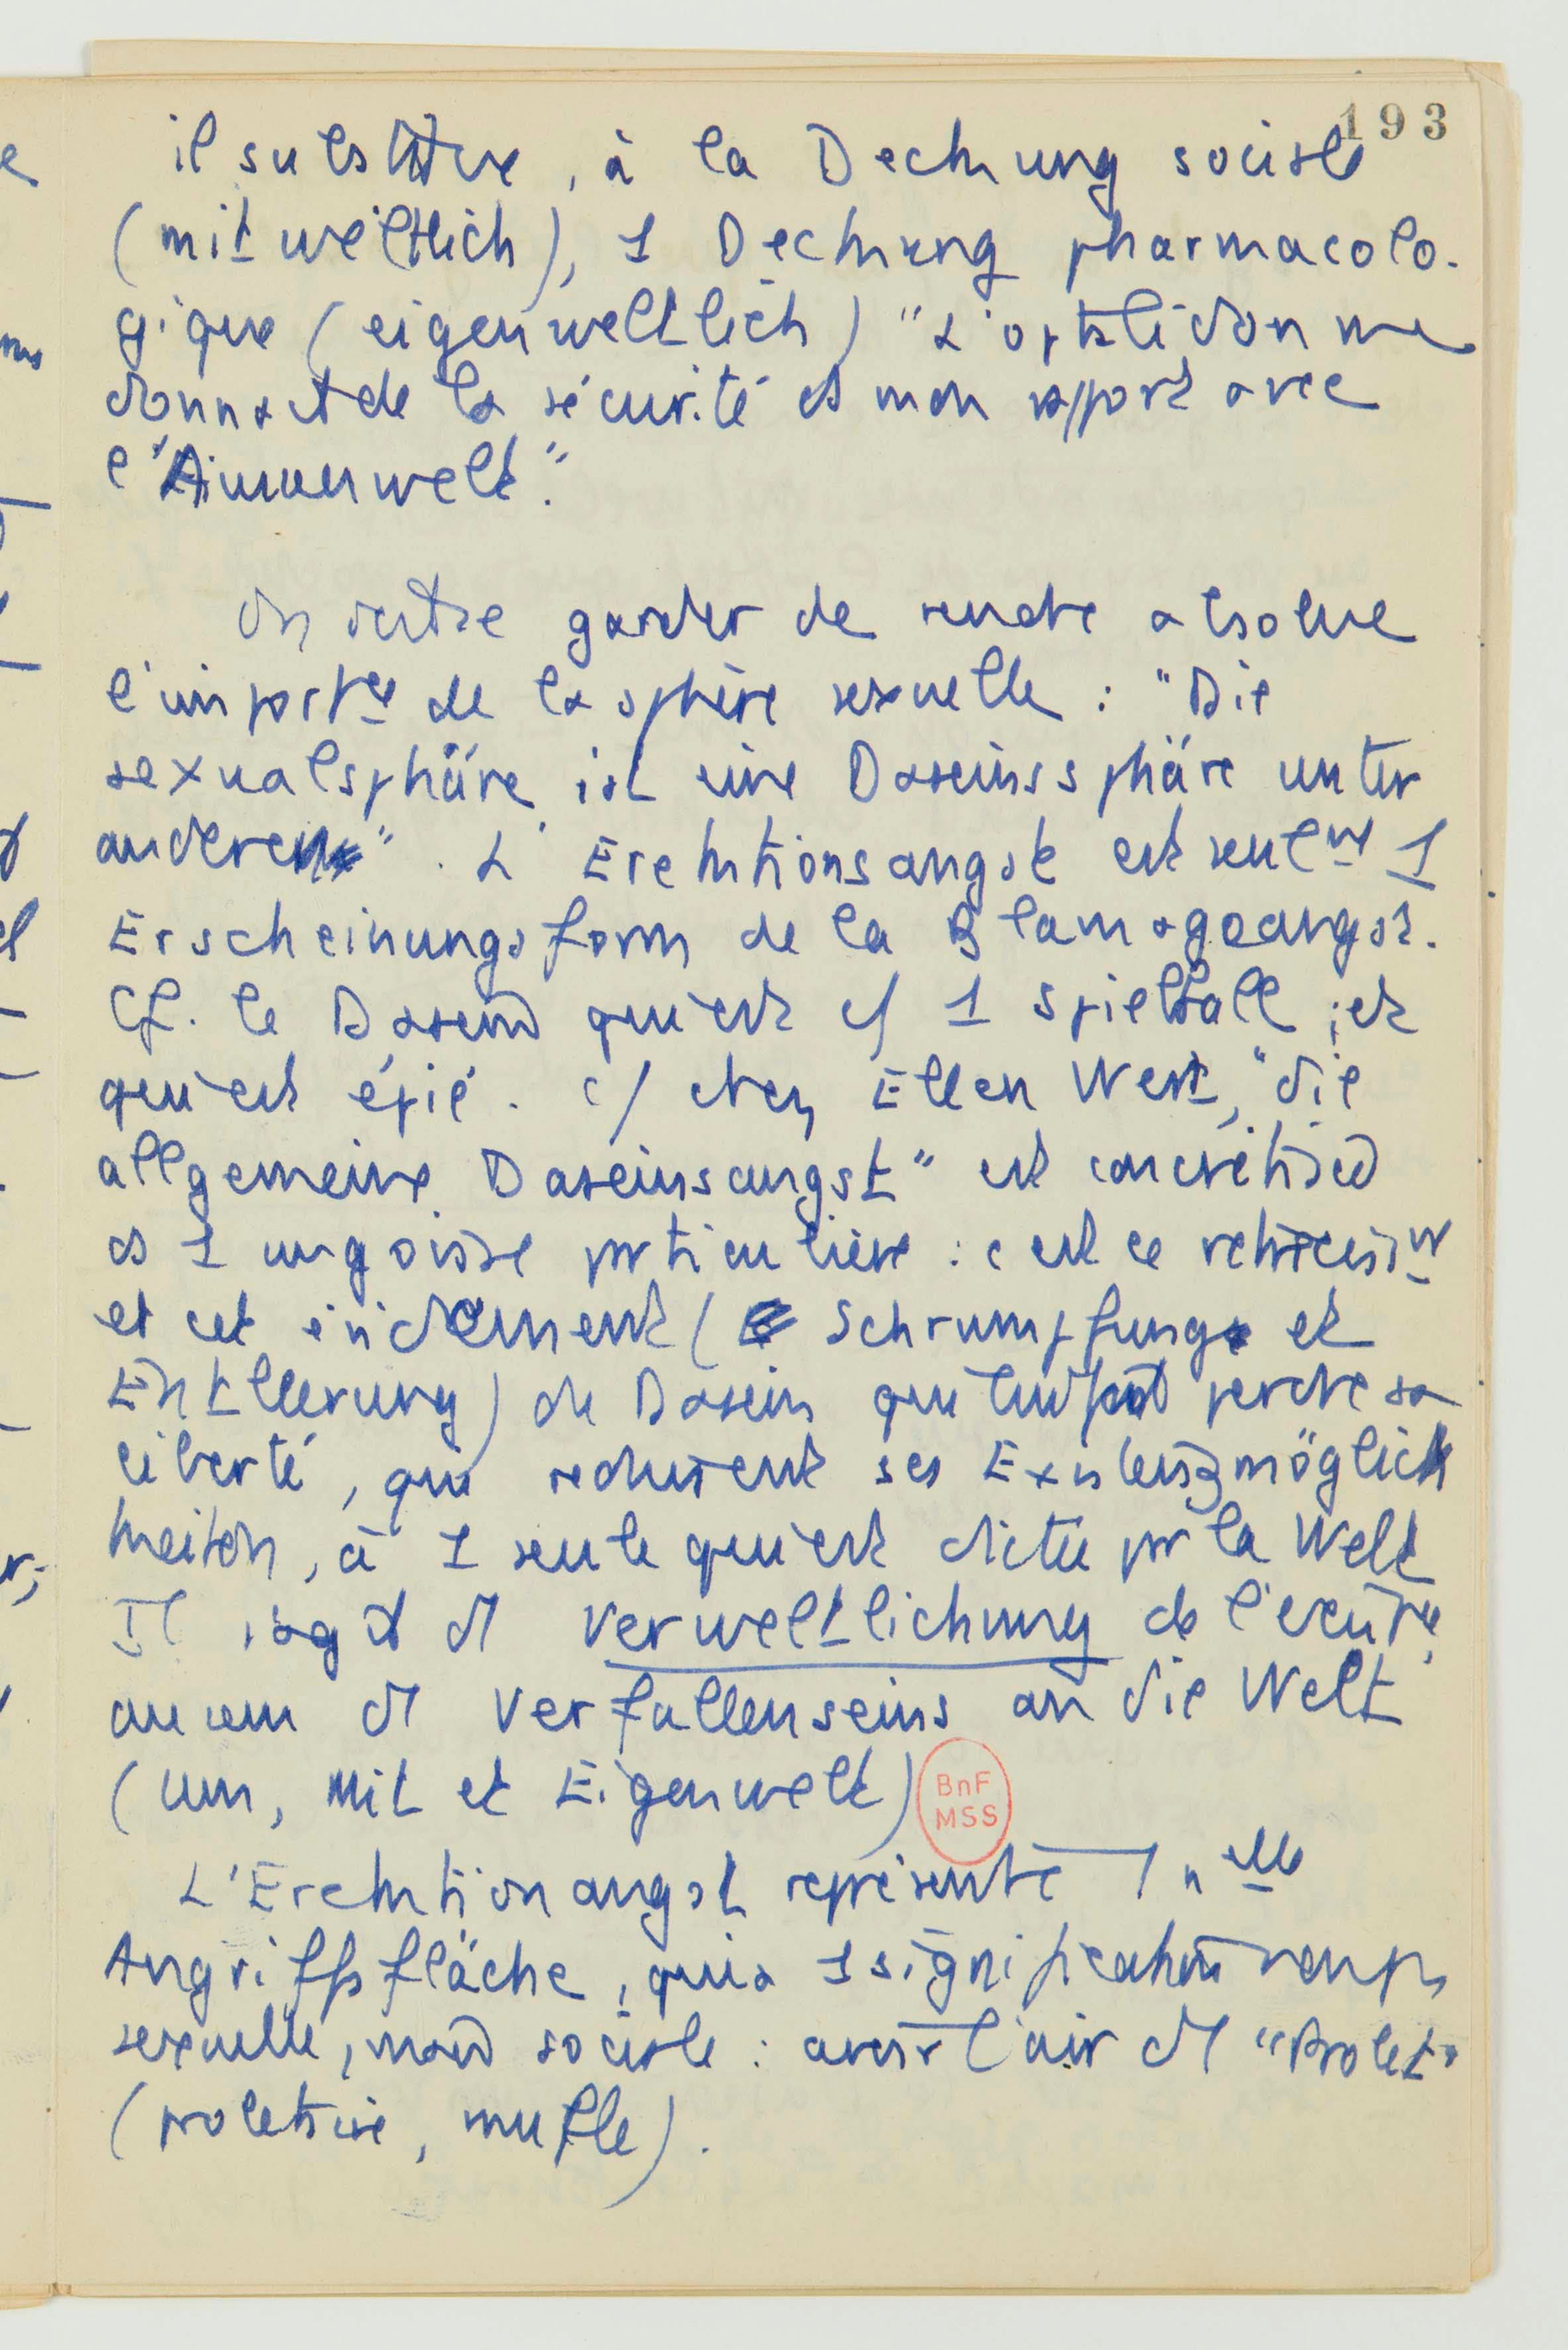 193
il substitue, à la Deckung sociale
(mitweltlich), 1 Deckung pharmacolo-
gique (eigenweltlich) "L'optalidon me
donnait de la sécurité ds mon rapport avec
l'Aussenwelt."
On doit se garder de rendre absolue
l'importce de la sphère sexuelle : "Die
sexualsphäre ist eine Daseinssphäre unter
anderen" . L'Erektionsangst est seulmt 1
Erscheinungsform de la Blamageangst.
Cf. le Dasein qui est c/ 1 Spielball ; et
qui est épié. c/ chez Ellen West, "die
allgemeine Daseinsangst" est concrétisée
ds 1 angoisse particulière : c'est ce rétrécissmt
et cet évidement ( Schrumpfung et
Entleerung) du Dasein qui lui font perdre sa
liberté, qui réduisent ses Existenzmöglich
keiten, à 1 seule qui est dictée par la Welt
Il s'agit d' Verweltlichung de l'existce,
au sens d' Verfallenseins an die Welt
(um, mit et Eigenwelt)
BnF
MSS
L'Erektionangst représente 1 nelle
Angriffsfläche, qui a 1 signification non ps
sexuelle, mais sociale : avoir l'air d' "Prolet"
(prolétaire, mufle).